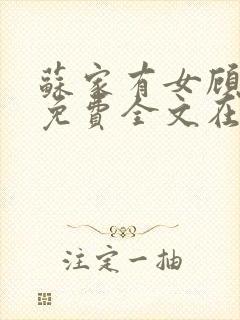 蘇家有女顾
免費全文在
注定一抽